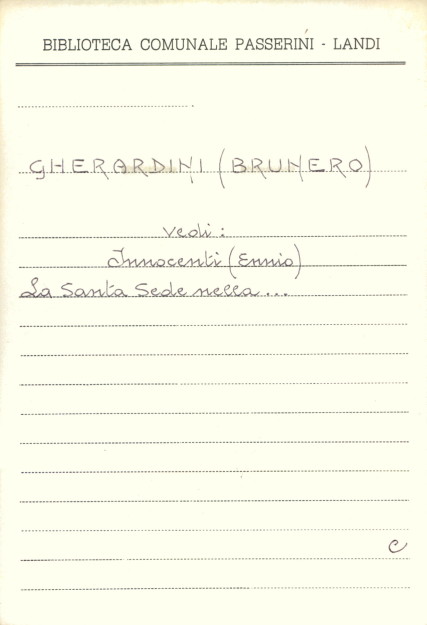 BIBLIOTECA COMUNALE PASSERINI - LANDI
GHERARDINI (BRUNERO)
vedi:
Innocenti (Ennio)
La Santa Sede nella ...
C